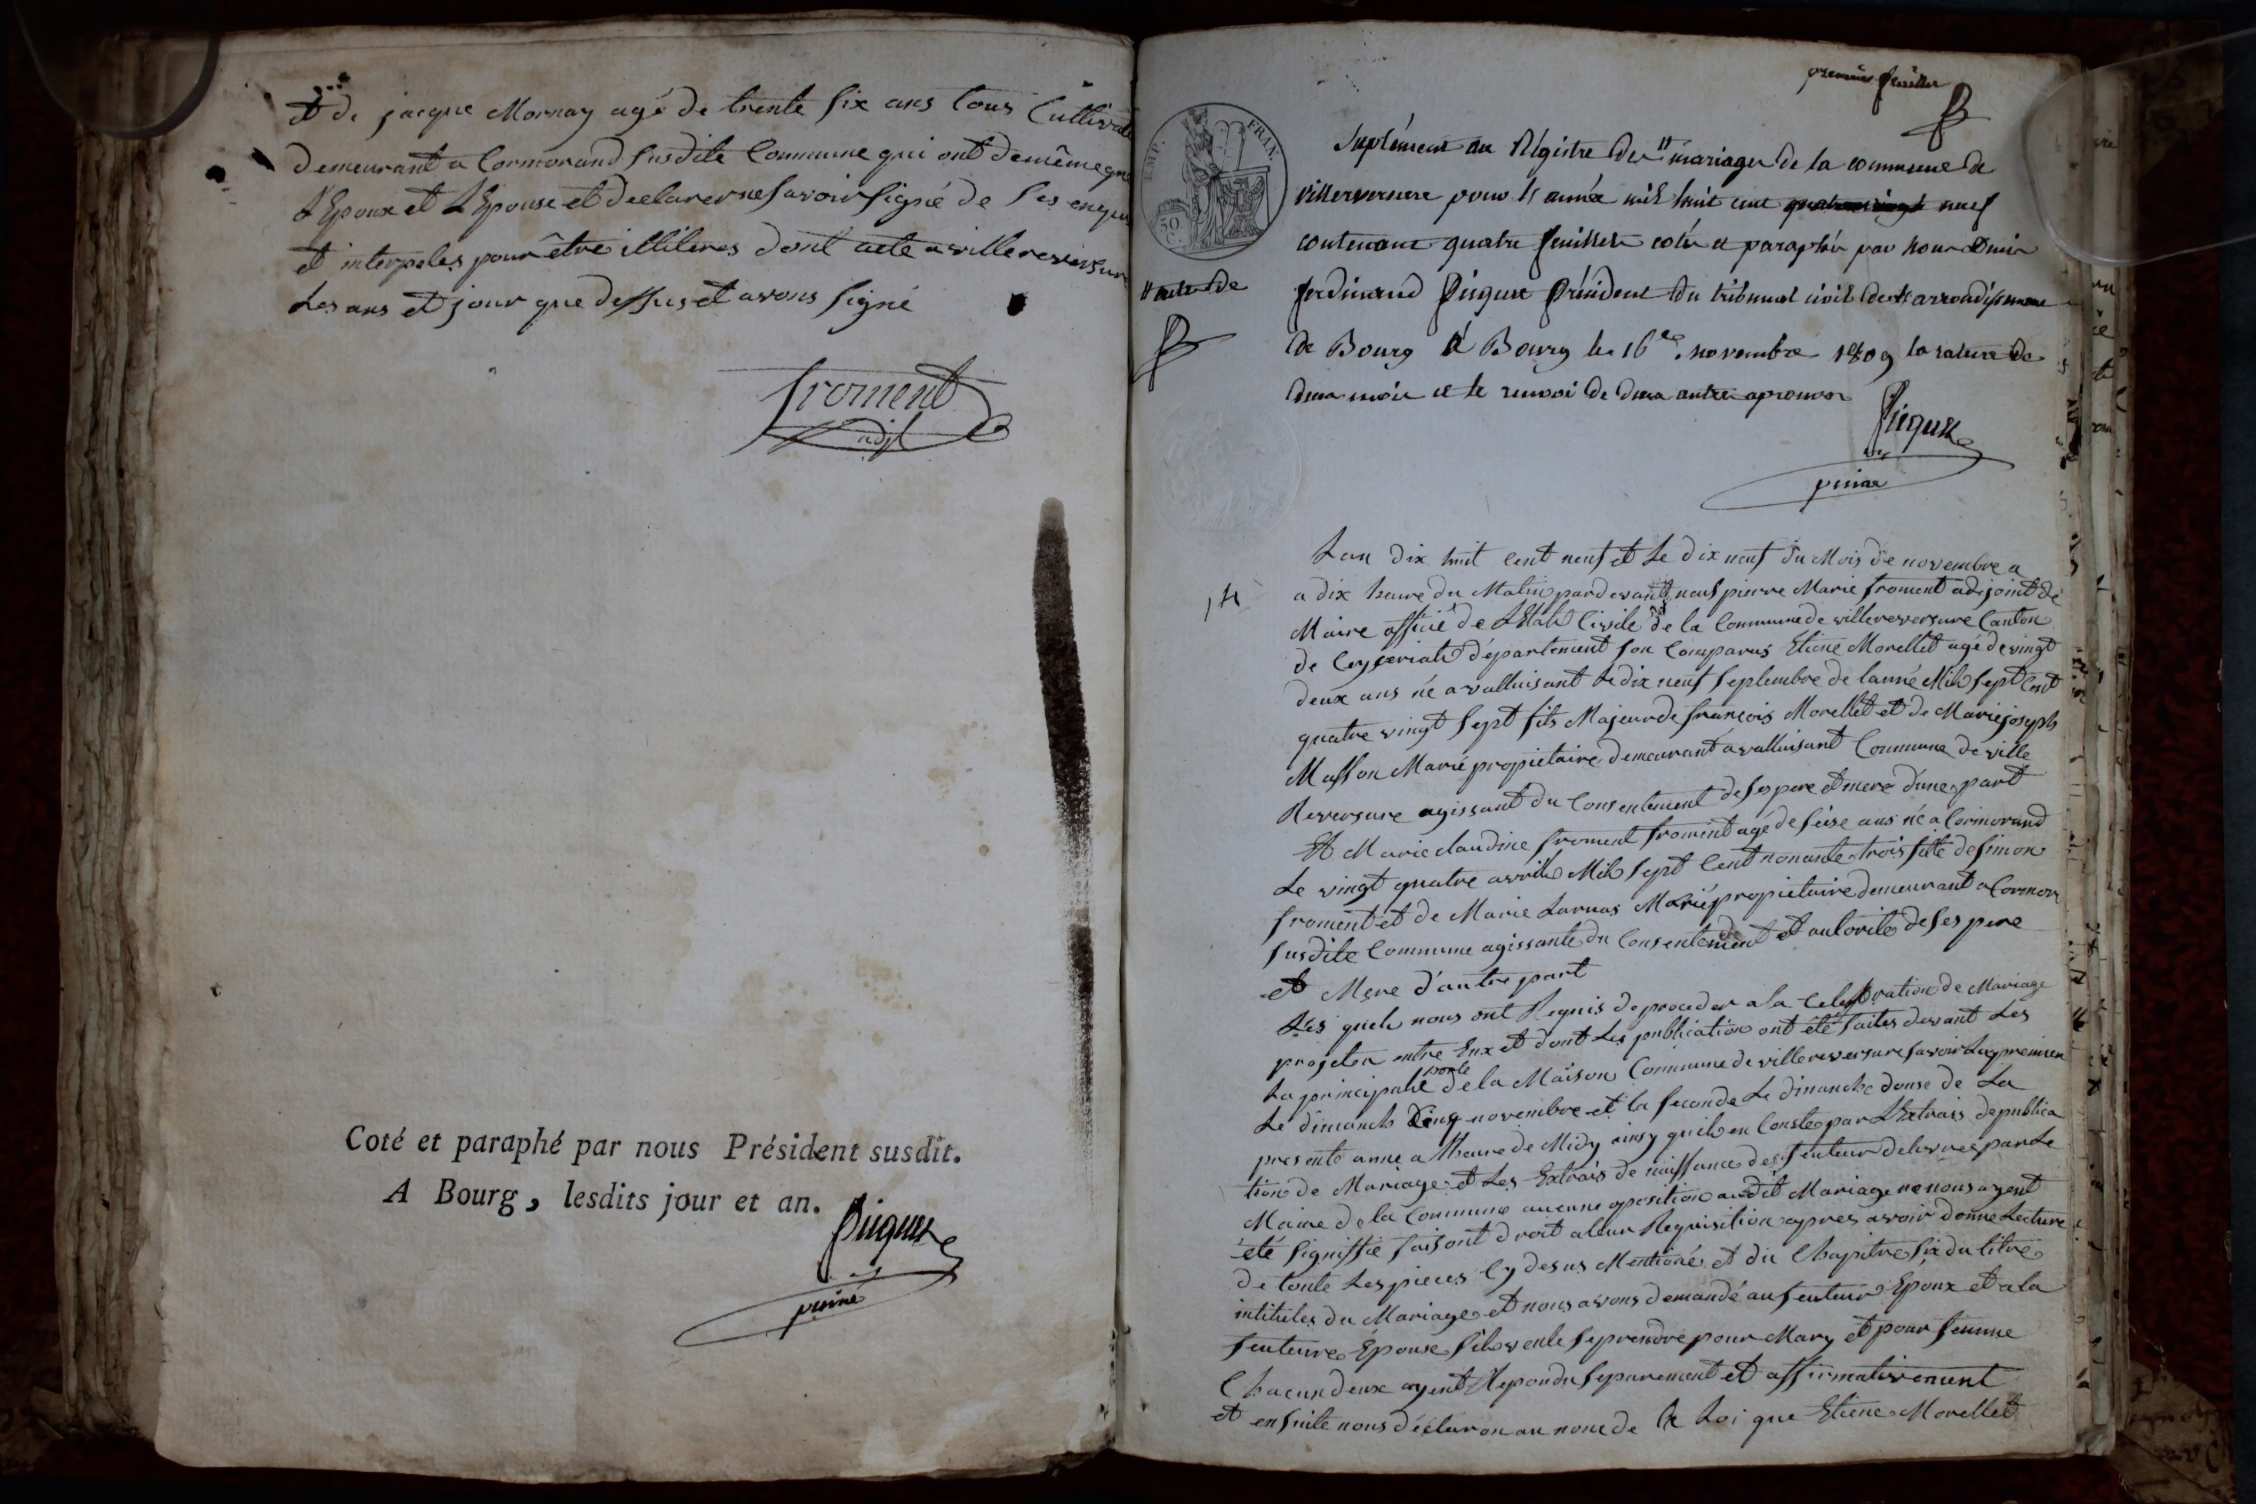 et de jacque Mornay agé de trente six ans tous Cultivate
demeurant a Cormorand susdite Commune qui ont demême que
L'Epoux et L'Epouse et declarer ne savoir signé de ses enquis
et interpeles pour être illiteres dont acte a villereversure
Les ans et jour que dessus et avons signé
froment
adjt
Coté et paraphé par nous Président susdit.
A Bourg, lesdits jour et an.
Picquet
premier feuillet
EMP. FRAN.
50 C.
Suplément au Régistre des " mariages de la commune de
villereversure pour l'année mil huit cent neuf
contenant quatre feuillets cotés et paraphés par nous Denis
" actes de
ferdinand Picquet Président du tribunal civil de l'arrondissement
de Bourg A Bourg le 16 novembre 1809 la rature de
deux mots et le renvoi de deux autres aprouvés
Picquet
14
Lan dix huit cent neuf et Le dix neuf du Mois de novembre a
a dix heure du Matin pardevant nous pierre Marie froment adjoint de
Maire officié de L'Etat Civile de la Commune de villereversure Canton
de Ceyzeriat département son Comparus Etiene Morellet agé de vingt
deux ans né a valluisant Le dix neuf Septembre de lanné Mil Sept Cent
quatre vingt Sept fils Majeur de françois Morellet et de Marie joseph
Masson Marié propietaire demeurant a valluisant Commune de ville
Reversure agissant du Consentement de ses pere et mere d'une part
Et Marie claudine froment froment agé de seise ans né a Cormorand
Le vingt quatre avril Mil Sept Cent nonante trois fille de simon
froment et de Marie Larnas Marié propietaire demeurant a Cormor
susdite Commune agissante du Consentement et autorité de ses pere
et Mere d'autre part
Les quels nous ont Requis de proceder a la Celebration de Mariage
projeter entre Eux et dont Les publication ont été faites devant Les
La principale porte de la Maison Commune de villereversure savoir La premiere
Le dimanch Cinq novembre et la seconde Le dimanche douse de La
presente anné a lheure de Midy ainsy quil en Conste par L'Extrais de publica
tion de Mariage et Les Extrais de naissance des feuteur delivres par Le
Maire de la Commune aucunne oposition audit Mariage ne nous ayent
été signiffié faisont droit a leur Requisition apres avoir donné Lecture
de toute Les pieces Cy desus Mentioné et du Chapitre six du titre
intitules du Mariage et nous avons demandé au feuteur Epoux et a la
feuteure Epouse sil veule se prendre pour Mary et pour femme
Chacun deux ayent Repondu separement et affirmativement
et ensuite nous declaron au nom de la Loi que Etiene Morellet